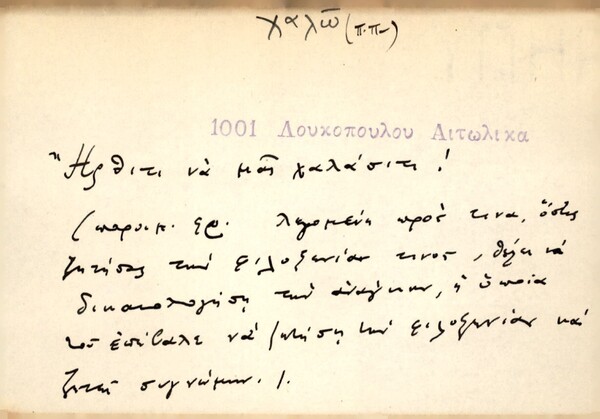 χαλῶ (π.π.)
1001 Λουκοπουλου Αιτωλικα
"Ἤρθιτι νὰ μᾶς χαλάσιτι!
(παροιμ. φρ. λεγομένη πρός τινα, ὅστις
ζητήσας τὴν φιλοξενίαν τινος, θέλει νὰ
δικαιολογήση τὴν ἀνάγκην, ἡ ὁποία
τοῦ ἐπέβαλε νὰ ζητήση τὴν φιλοξενίαν καὶ
ζητεῖ συγνώμην.).